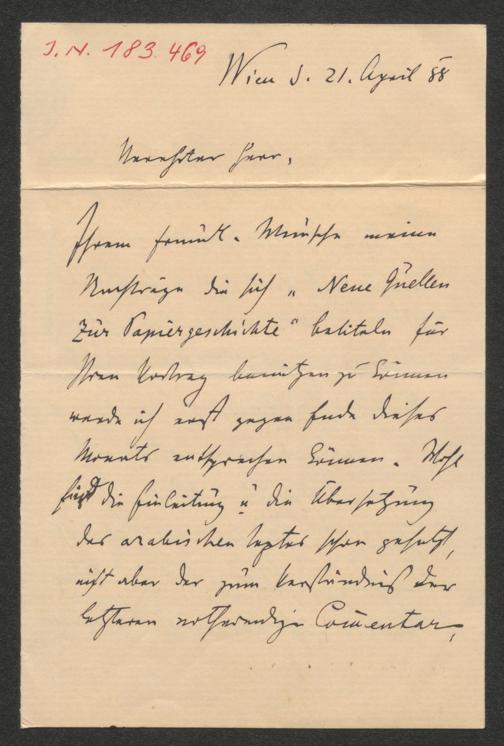 J.N. 183.469
Wien d. 21. April 88
Verehrter Herr,
Ihrem freundl. Wunsche meine
Nachträge die sich „Neue Quellen
zur Papiergeschichte" betiteln für
Ihren Vortrag benützen zu können
werde ich erst gegen Ende dieses
Monats entsprechen können. Wohl
sind die Einleitung u die Übersetzung
des arabischen Textes schon gesetzt,
nicht aber der zum Verständniß der
letzteren nothwendige Com̄entar,